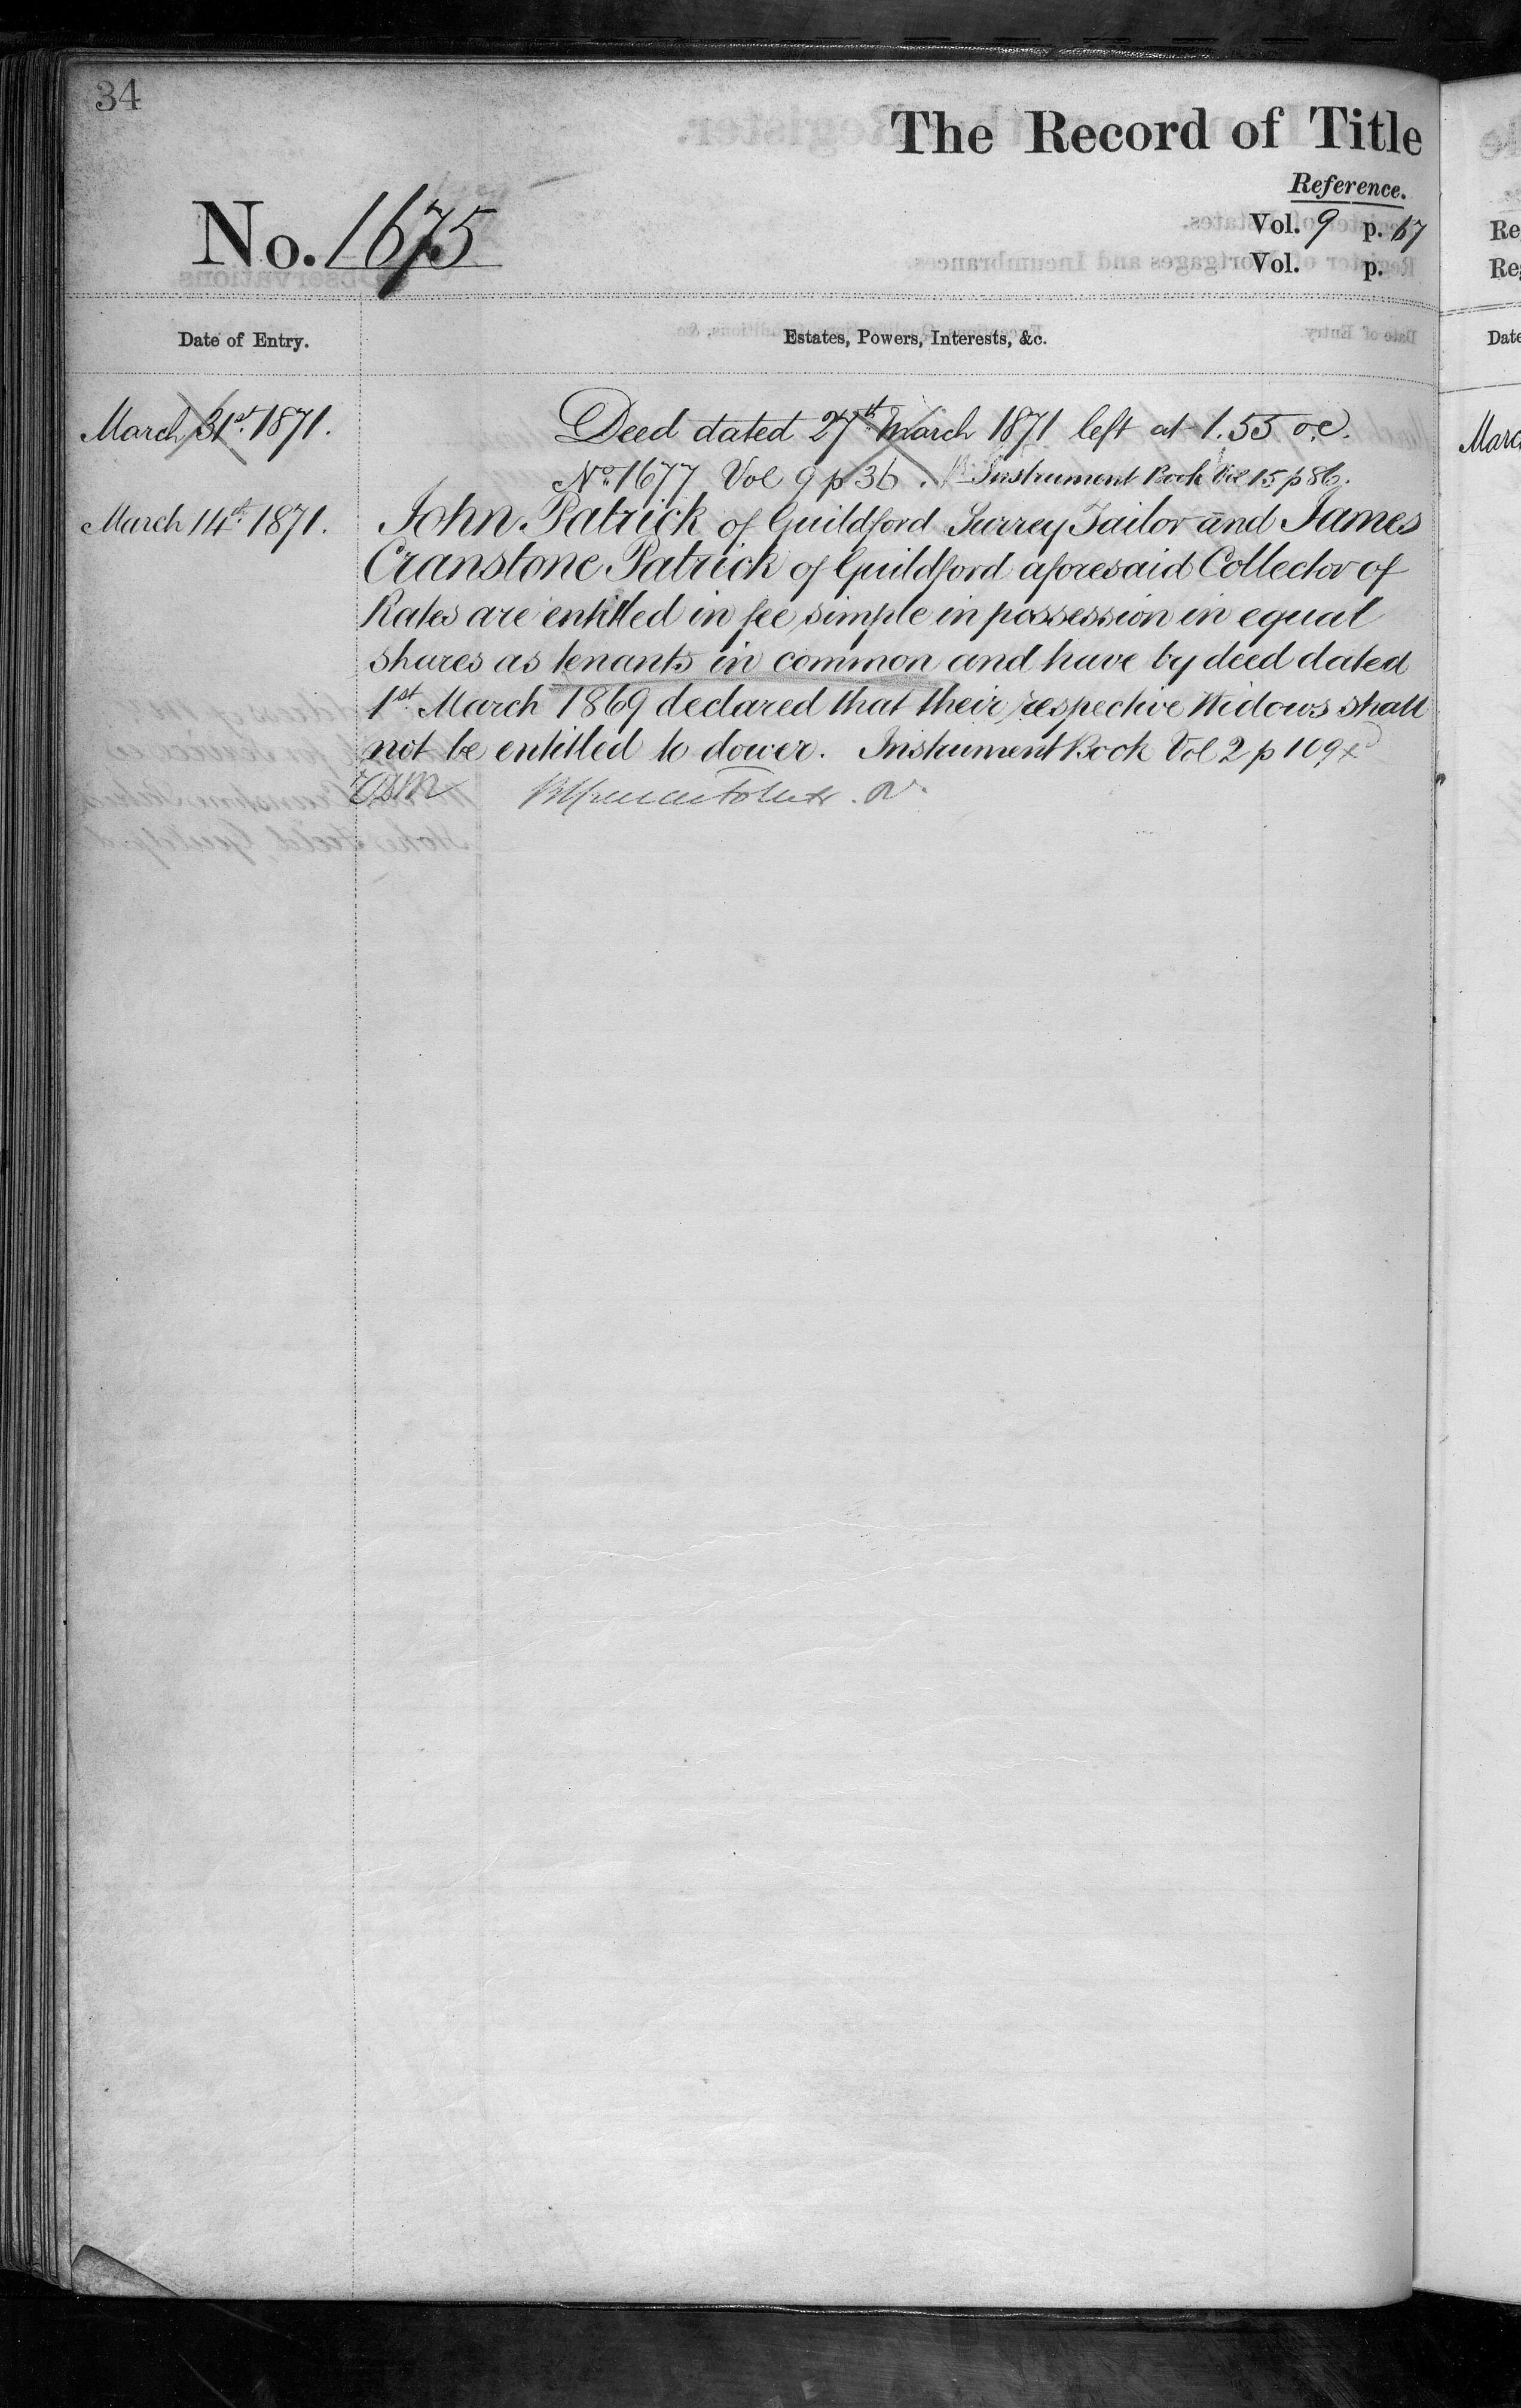 34
The Record of Title
Reference.
No. 1675
Vol. 9 p. 67
Vol. p.
Date of Entry. Estates, Powers, Interests, &c.
March 31st. 1871. Deed dated 27th March 1871 left at 1.55 o.c.
No. 1677 Vol 9 p 36. Instrument Book Vol 15 p 86.
March 14th. 1871. John Patrick of Guildford Surrey Tailor and James
Cranstone Patrick of Guildford aforesaid Collector of
Rates are entitled in fee simple in possession in equal
shares as tenants in common and have by deed dated
1st. March 1869 declared that their respective Widows shall
not be entitled to dower. Instrument Book Vol 2 p 109 x
Re
Re
Date
Marc